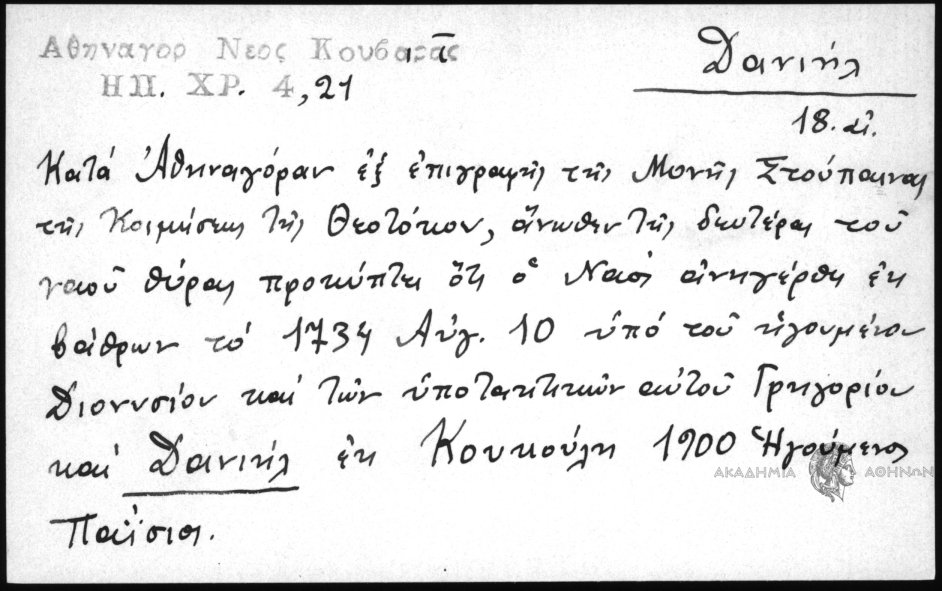 Ἀθηναγορ Νεος Κουβαρᾶς
ΗΠ. ΧΡ. 4,21
Δανιήλ
18. αἰ.
Κατά Ἀθηναγόραν ἐξ ἐπιγραφῆς τῆς Μονῆς Στούπαινας
τῆς Κοιμήσεως τῆς Θεοτόκου, ἄνωθεν τῆς δευτέρας τοῦ
ναοῦ θύρας προκύπτει ὅτι ὁ Ναός ἀνηγέρθη ἐκ
βάθρων τό 1734 Αὐγ. 10 ὑπό τοῦ ἡγουμένου
Διονυσίου καί τῶν ὑποτακτικῶν αὐτοῦ Γρηγορίου
καί Δανιήλ ἐκ Κουκούλη 1900 Ἡγούμενος
ΑΚΑΔΗΜΙΑ ΑΘΗΝΩΝ
Παΐσιος.